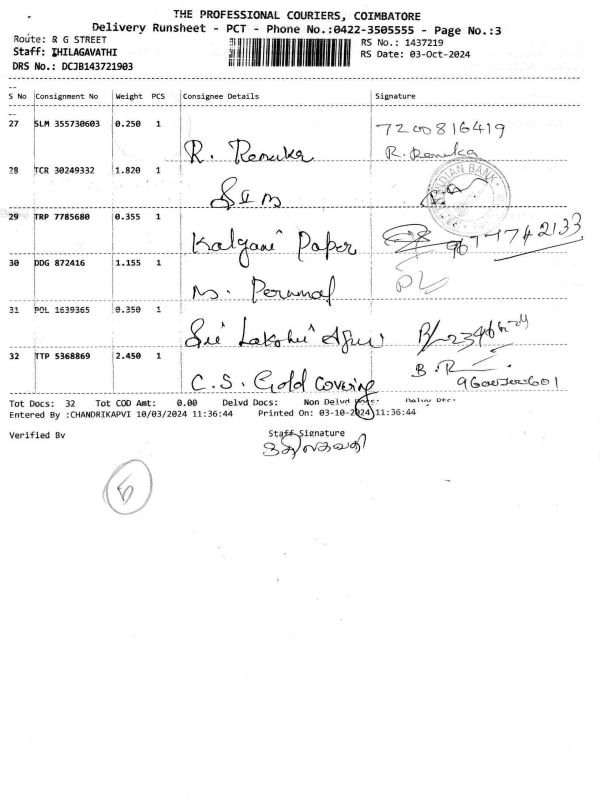 THE PROFESSIONAL COURIERS, COIMBATORE
Delivery Runsheet - PCT - Phone No.:0422-3505555 - Page No.:3
Route: R G STREET RS No.: 1437219
Staff: THILAGAVATHI RS Date: 03-Oct-2024
DRS No.: DCJB143721903
S No Consignment No Weight PCS Consignee Details Signature
27 SLM 355730603 0.250 1
7200816419
R. Renuka R. Renuka
28 TCR 30249332 1.820 1
INDIAN BANK
29 TRP 7785680 0.355 1
Kalyani Paper 9677742133
30 DDG 872416 1.155 1
M. Perumal
31 POL 1639365 0.350 1
Sri Lakshmi
32 TTP 5368869 2.450 1
B.R
C.S. Gold Covering
Tot Docs: 32 Tot COD Amt: 0.00 Delvd Docs: Non Delvd Docs:
Entered By :CHANDRIKAPVI 10/03/2024 11:36:44 Printed On: 03-10-2024 11:36:44
Verified By Staff Signature
திலகவதி